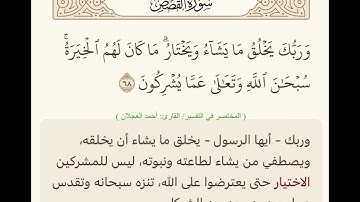 سُورَةُ القَصَصِ
وَرَبُّكَ يَخْلُقُ مَا يَشَآءُ وَيَخْتَارُۗ مَا كَانَ لَهُمُ ٱلْخِيَرَةُۚ
سُبْحَٰنَ ٱللَّهِ وَتَعَٰلَىٰ عَمَّا يُشْرِكُونَ ٦٨
( المختصر في التفسير/ القارئ: أحمد العجلان )
وربك - أيها الرسول - يخلق ما يشاء أن يخلقه،
ويصطفي من يشاء لطاعته ونبوته، ليس للمشركين
الاختيار حتى يعترضوا على الله، تنزه سبحانه وتقدس